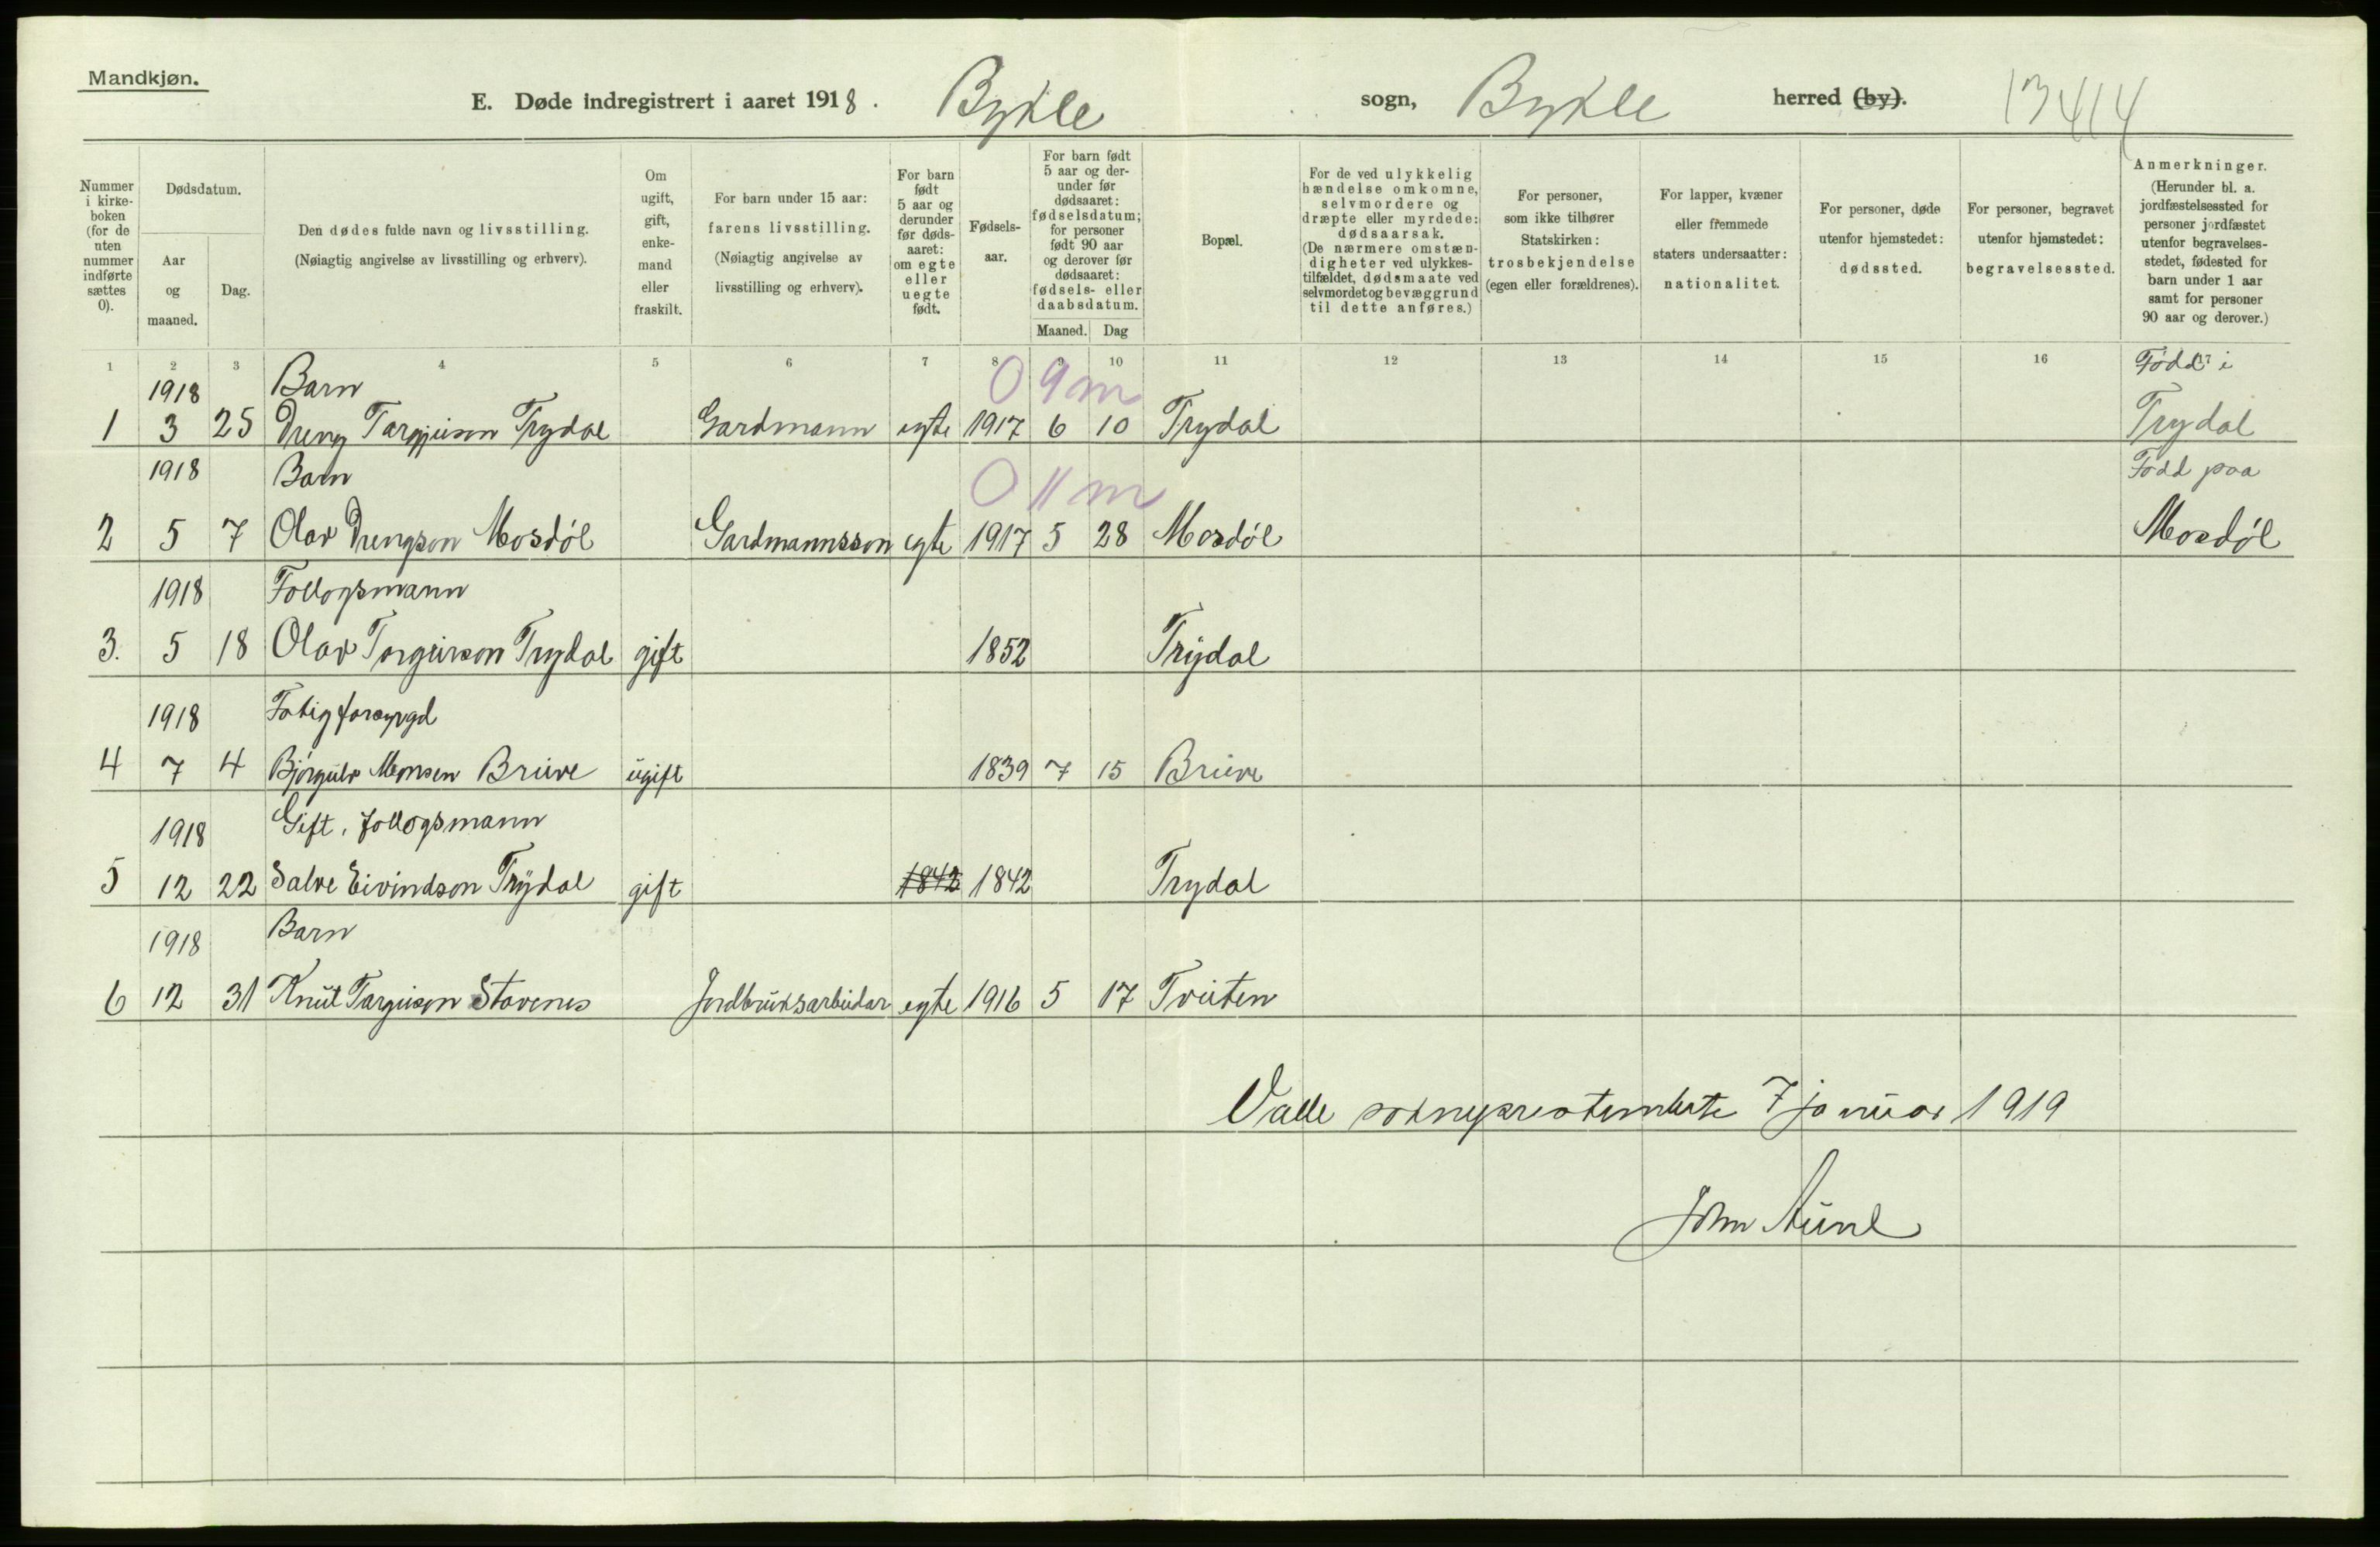 Mandkjøn.
E. Døde indregistrert i aaret 1918. Bykle sogn, Bykle herred (by). 13414
Nummer i kirke-boken (for de uten nummer indførte sættes 0).
Dødsdatum.
Aar og maaned.
Dag.
Den dødes fulde navn og livsstilling.
(Nøiagtig angivelse av livsstilling og erhverv).
Om ugift, gift, enke-mand eller fraskilt.
For barn under 15 aar:
farens livsstilling.
(Nøiagtig angivelse av livsstilling og erhverv).
For barn født 5 aar og derunder før døds-aaret: om egte eller uegte født.
Fødsels-aar.
For barn født 5 aar og der-under før dødsaaret: fødselsdatum; for personer født 90 aar og derover før dødsaaret: fødsels- eller daabsdatum.
Maaned. Dag
Bopæl.
For de ved ulykkelig hændelse omkomne, selvmordere og dræpte eller myrdede: dødsaarsak. (De nærmere omstæn-digheter ved ulykkes-tilfældet, dødsmaate ved selvmordet og bevæggrund til dette anføres.)
For personer, som ikke tilhører Statskirken: trosbekjendelse (egen eller forældrenes).
For lapper, kvæner eller fremmede staters undersaatter: nationalitet.
For personer, døde utenfor hjemstedet: dødssted.
For personer, begravet utenfor hjemstedet: begravelsessted.
Anmerkninger.
(Herunder bl. a. jordfæstelsessted for personer jordfæstet utenfor begravelses-stedet, fødested for barn under 1 aar samt for personer 90 aar og derover.)
1 2 3 4 5 6 7 8 9 10 11 12 13 14 15 16 17
1918 Barn 0 9 m Fødd i
1 3 25 Dreng Targjuson Trydal Gardmann egte 1917 6 10 Trydal Trydal
1918 Barn 0 11 m Fødd paa
2 5 7 Olav Drengson Mosdøl Gardmannsson egte 1917 5 28 Mosdøl Mosdøl
1918 Follogsmann
3. 5 18 Olav Torgeirson Trydal gift 1852 Trydal
1918 Fatigforsyrgd
4 7 4 Bjørgulv Monsen Bruve ugift 1839 7 15 Bruve
1918 Gift, follogsmann
5 12 22 Salve Eivindson Trydal gift 1842 1842 Trydal
1918 Barn
6 12 31 Knut Targeison Stavenes Jordbruksarbeidar egte 1916 5 17 Tveiten
Valle sokneprestembete 7 januar 1919
John Aune